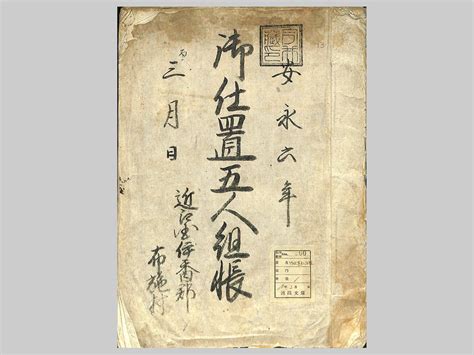 安永六年
御仕置五人組帳
三月日
近江国伊香郡
布施村